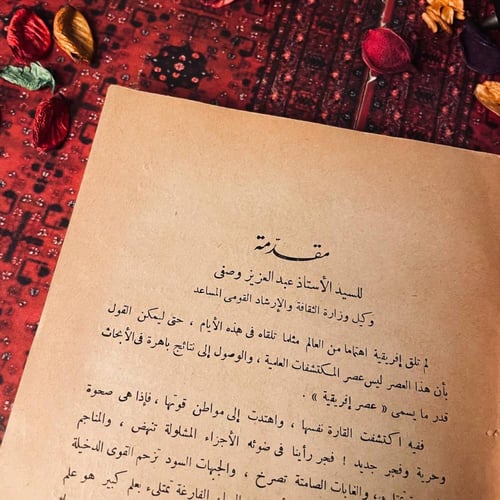 مقدّمة
للسيد الأستاذ عبد العزيز وصفى
وكيل وزارة الثقافة والإرشاد القومى المساعد
لم تلق إفريقية اهتماما من العالم مثلما تلقاه فى هذه الأيام ، حتى ليمكن القول
بأن هذا العصر ليس عصر المكتشفات العلمية ، والوصول إلى نتائج باهرة فى الأبحاث
قدر ما يسمى « عصر إفريقية » .
ففيه اكتشفت القارة نفسها ، واهتدت إلى مواطن قوتها ، فإذا هى صحوة
وحرية وفجر جديد ! فجر رأينا فى ضوئه الأجزاء المشلولة تنهض ، والمناجم
والغابات الصامتة تصرخ ، والجبهات السود تزحم القوى الدخيلة
الفارغة تمتلىء بعلم كبير هو علم